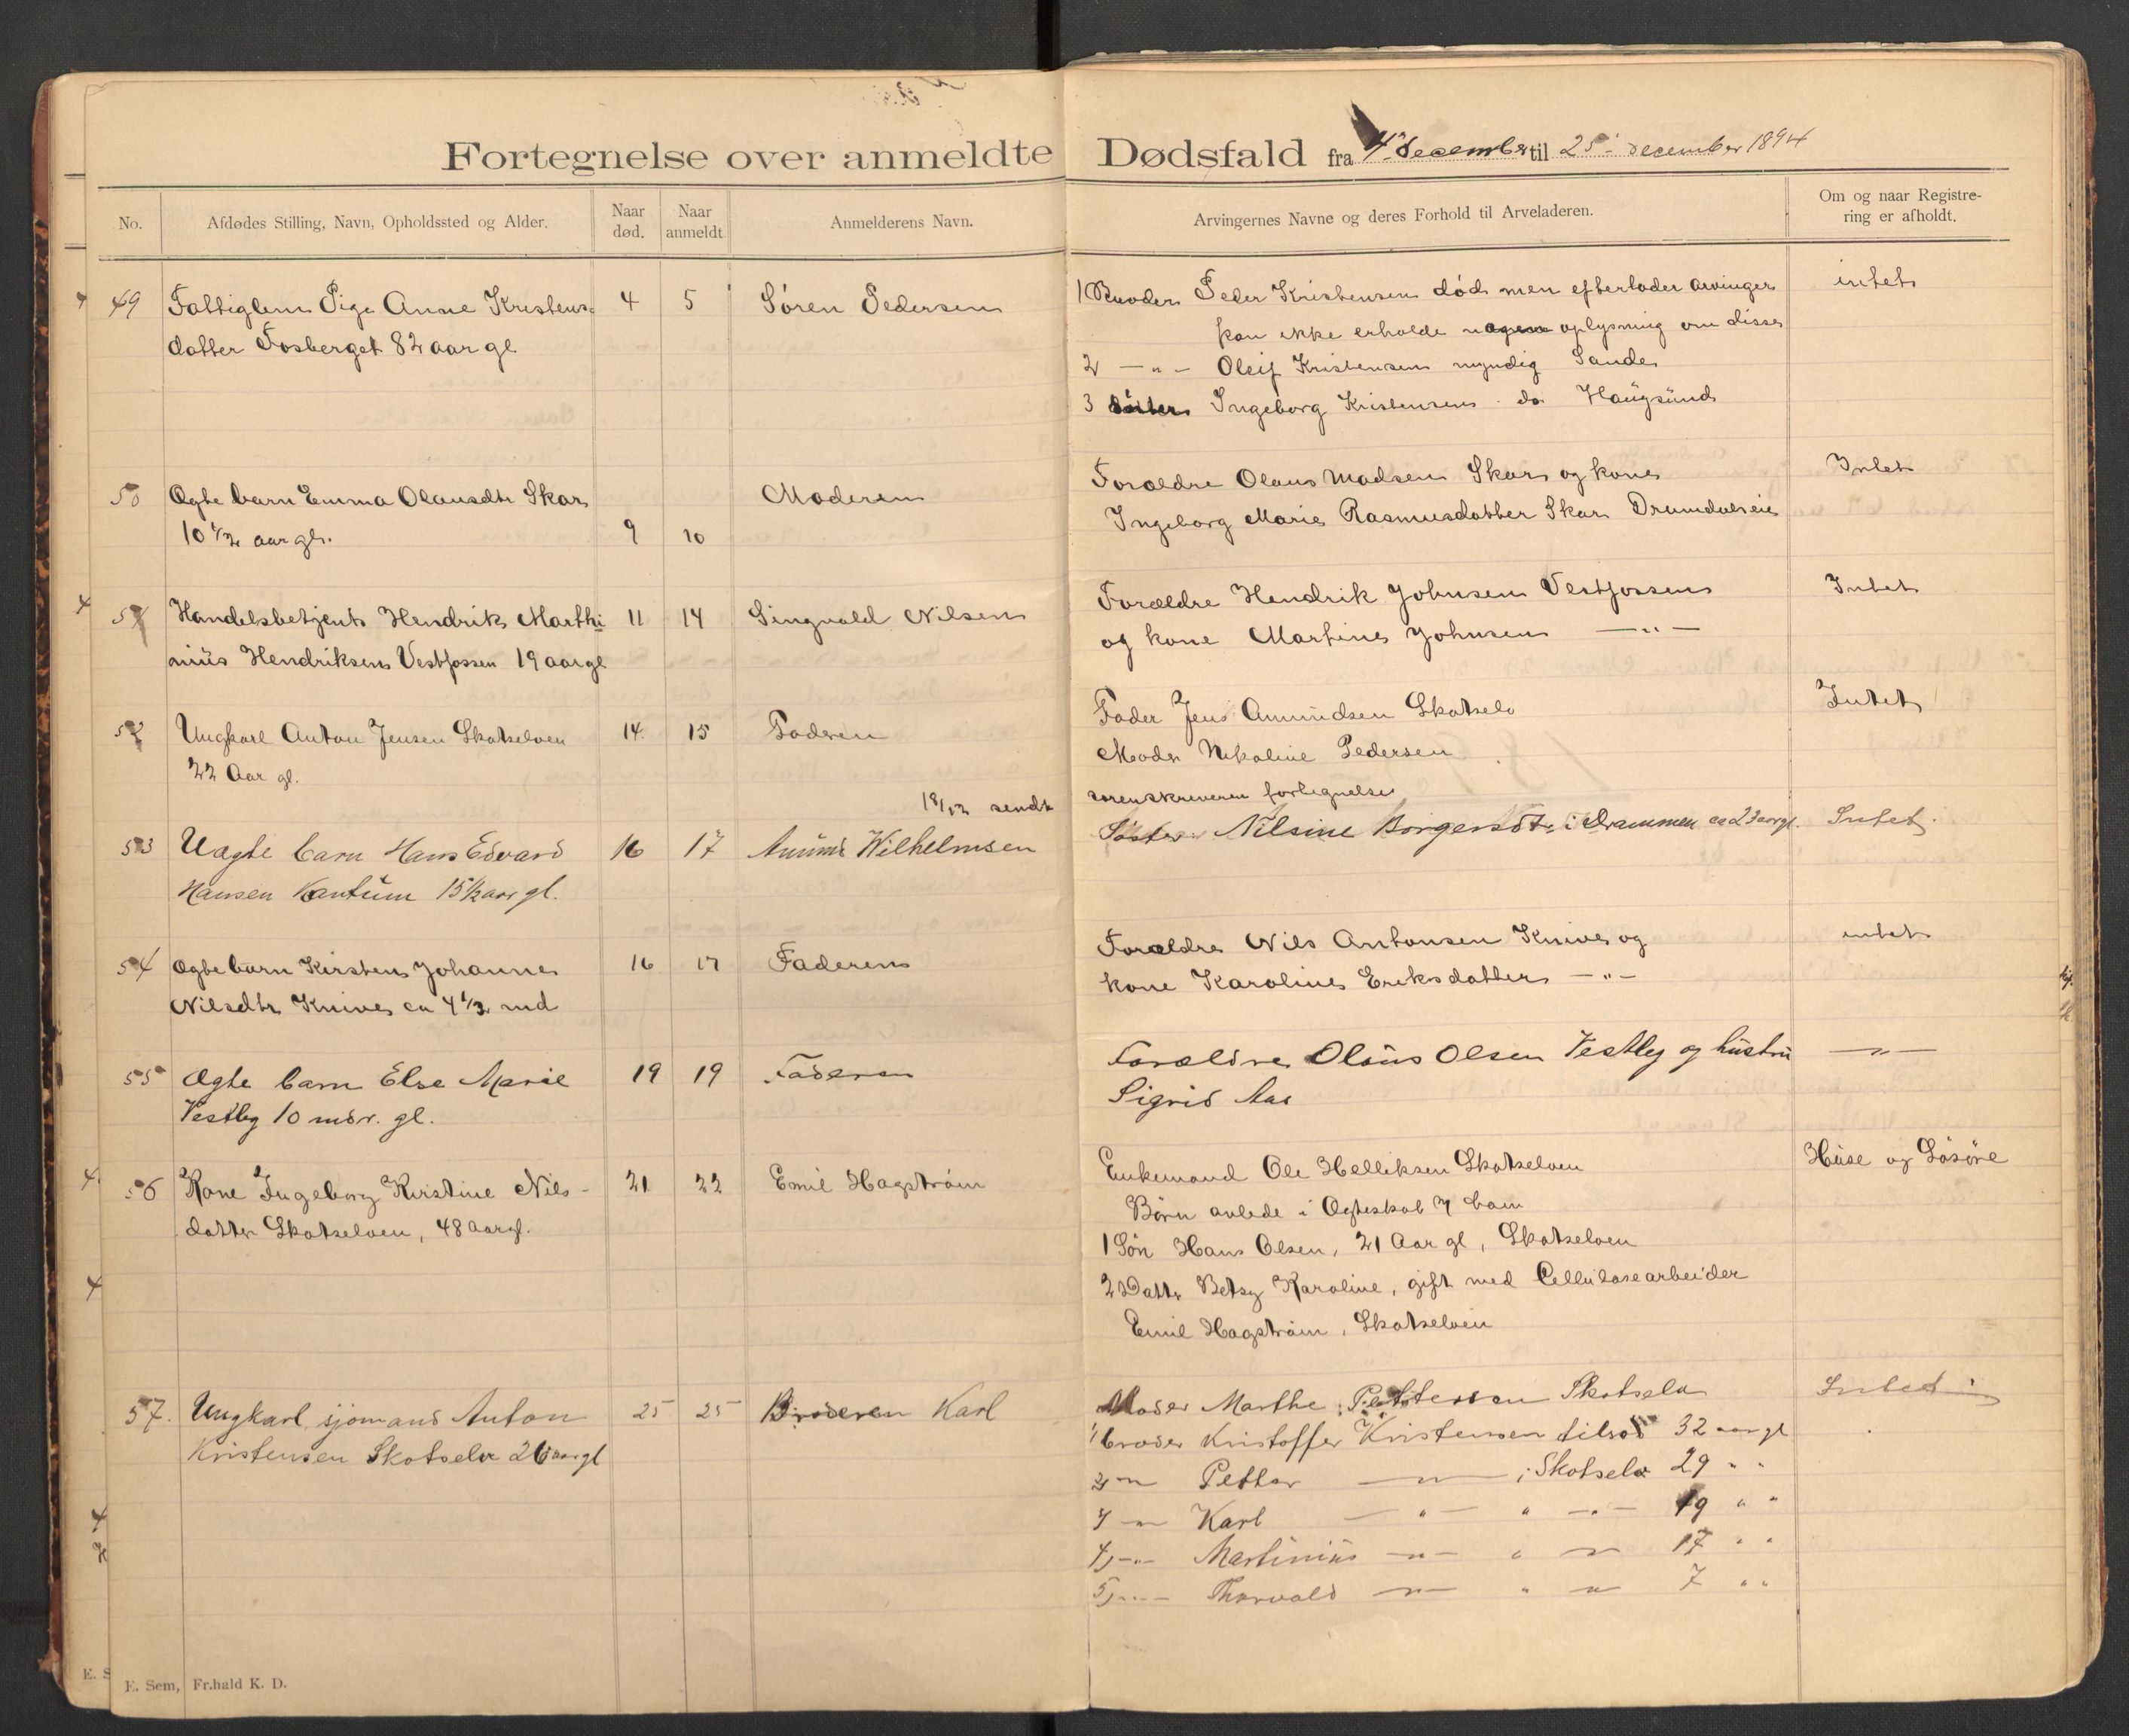 Fortegnelse over anmeldte Dødsfald fra 4 december til 25 - december 1894
No.
Afdødes Stilling, Navn, Opholdssted og Alder.
Naar død.
Naar anmeldt
Anmelderens Navn.
Arvingernes Navne og deres Forhold til Arveladeren.
Om og naar Registre-
ring er afholdt.
49 Fattiglem Pige Anne Kristens-
datter Fosberget 82 aar gl
4 5 Søren Pedersen
1 Broder Peder Kristensen død men efterlader arvinger
kan ikke erholde nogen oplysning om disse
2 — " — Oleif Kristensen myndig Sande
3 søster Ingeborg Kristensen do Haugsund
intet
50 Ægte barn Emma Olausdtr Skar
10 1/2 aar gl.
9 10 Moderen
Forældre Olaus Madsen Skar og kone
Ingeborg Marie Rasmusdatter Skar
Intet
51 Handelsbetjent Hendrik Marthi
nius Hendriksen Vestfossen 19 aar gl
11 14 Singvald Nilsen
Forældre Hendrik Johnsen Vestfossen
og kone Martine Johnsen — " —
Intet
52 Ungkarl Anton Jensen Skotselven
22 Aar gl.
14. 15 Faderen
Fader Jens Amundsen Skotselv
Moder Nikoline Pedersen
Intet
18/12 sendt sorenskriveren fortegnelse
53 Uægte barn Hans Edvard
Hansen Kantum 15 1/2 aar gl.
16 17 Amund Wilhelmsen
Søster Nilsine Borgersdtr i Drammen ca 23 aar gl.
Intet.
54 Ægte barn Kirsten Johanne
Nilsdtr Knive ca 4 1/2 md
16 17 Faderen
Forældre Nils Antonsen Knive og
kone Karoline Eriksdatter — " —
intet
55 Ægte barn Else Marie
Vestby 10 mdr. gl.
19 19 Faderen
Forældre Olaus Olsen Vestby og hustru
Sigrid Aas
— " —
56 Kone Ingeborg Kirstine Nils-
datter Skotselven, 48 aar gl.
21 22 Emil Hagstrøm
Enkemand Ole Helliksen Skotselven
Børn avlede i Ægteskab 7 barn
1 Søn Hans Olsen, 21 Aar gl, Skotselven
2 Dattr Betsy Karoline, gift med Cellulosearbeider
Emil Hagstrøm, Skotselven
Huse og Løsøre
57. Ungkarl sjømand Anton
Kristensen Skotselv 26 aar gl
25 25 Broderen Karl
Moder Marthe Pettersen Skotselv
1 broder Kristoffer Kristensen tilsøs 32 aar gl
2 — " — Petter — " — i Skotselv 29 " "
3 — " — Karl — " — " — " — 19 " "
4) — " — Martinius — " — " — " — 17 " "
5) — " — Thorvald — " — " — " — 7 " "
Intet
E. Sem, Fr.hald K. D.